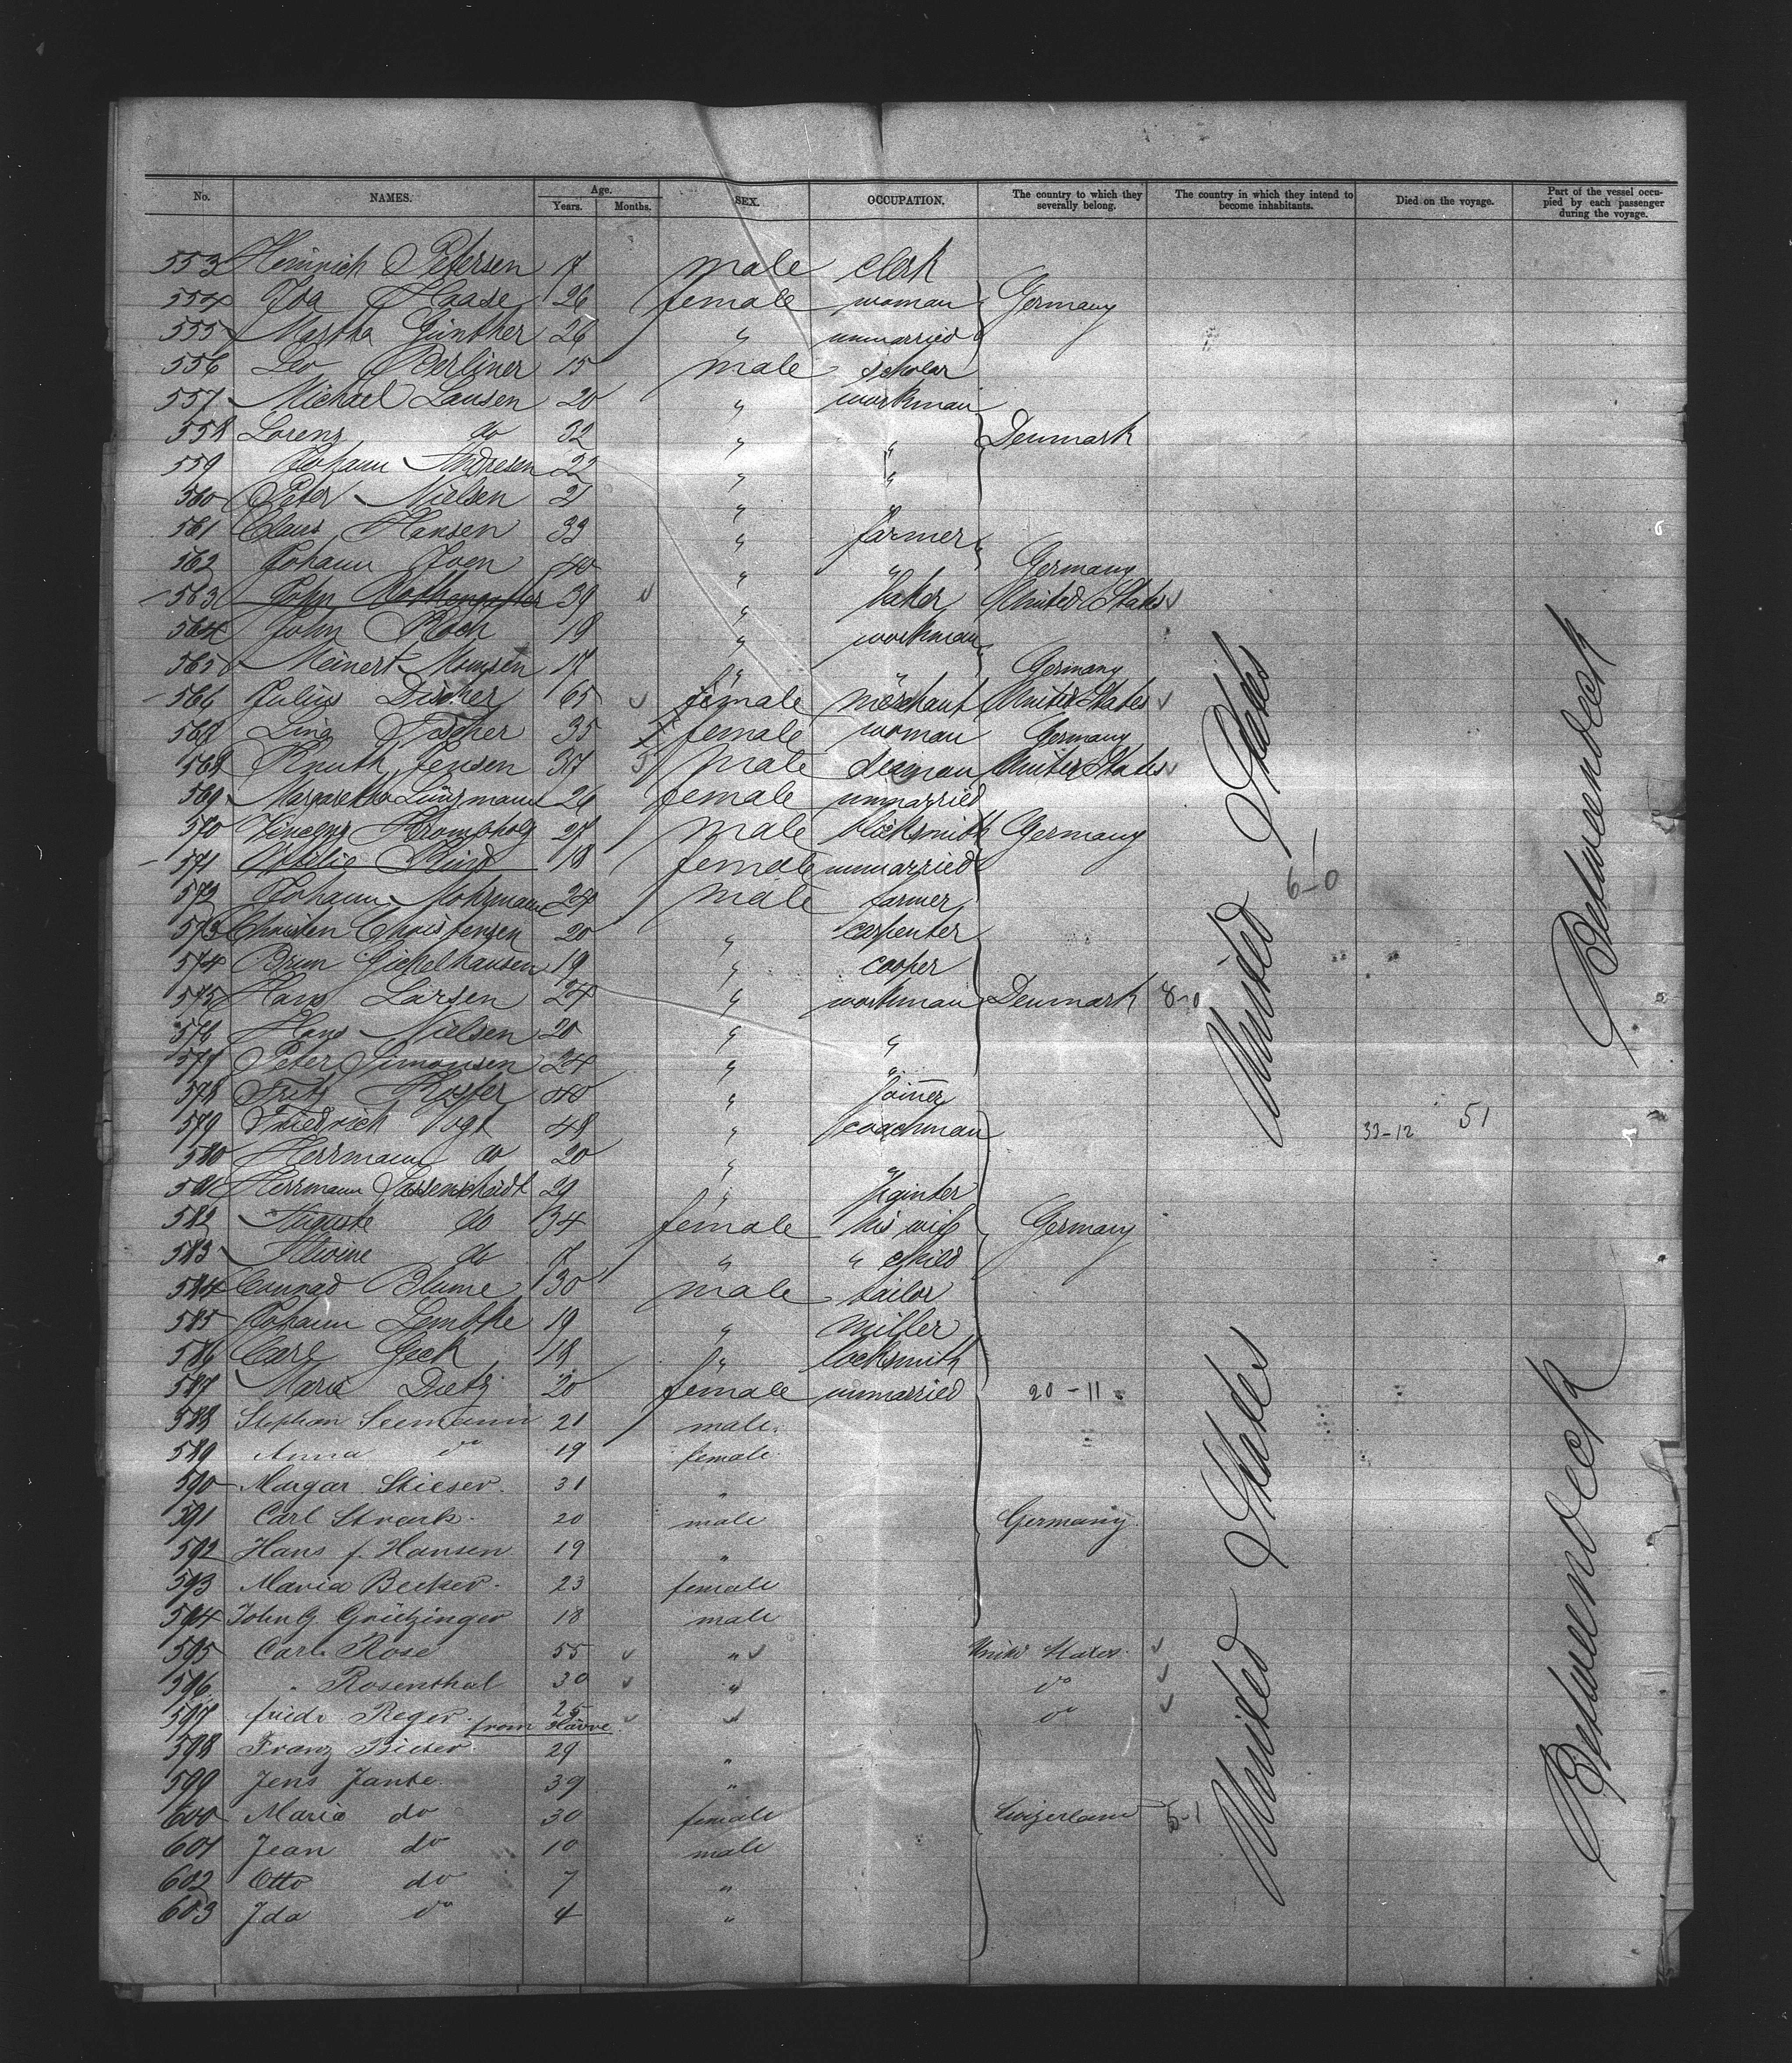 No. NAMES. Age. Years. Months. SEX. OCCUPATION. The country to which they severally belong. The country in which they intend to become inhabitants. Died on the voyage. Part of the vessel occupied by each passenger during the voyage.
553 Heinrich Petersen 17 male clerk
554 Ida Haase 26 female woman Germany
555 Martha Günther 26 " unmarried
556 Leo Berliner 15 male scholar
557 Michael Lausen 20 " workman
558 Lorenz do 32 " " Denmark
559 Johann Andresen 22 " "
560 Peter Nielsen 21 " "
561 Claus Hansen 33 " farmer
562 Johann Joen 40 " " Germany
563 John 39 " baker United States
564 John Roch 19 " workman
565 Meinert Momsen 17 " " Germany
566 Julius Discher 65 male merchant United States
568 Lina Fischer 35 female woman Germany
568 Knuth Jensen 37 male seaman United States
569 Margaretha 26 female unmarried
570 Vincenz Krompholz 27 male blocksmith Germany
571 Ottilie Rind 18 female unmarried
572 Johann Mohrmann 24 male farmer
573 Christen Christensen 20 " carpenter
574 Brun Gickelhausen 19 " cooper
575 Hans Larsen 24 " workman Denmark 8-0
576 Hans Nielsen 20 " "
577 Peter Simonsen 24 " "
578 Fritz 40 " joiner
579 Friedrich Vogt 48 " coachman 33-12 51
580 Herrmann do 20 " "
581 Herrmann Sassenscheidt 29 "
582 Auguste do 34 female his wife Germany
583 Alwine do 7 " " child
584 Conrad Blume 30 male tailor
585 Johann Lembke 19 " miller
586 Carl Geck 18 " locksmith
587 Maria Dietz 20 female unmarried 20-11
588 Stephan Seemann 21 male
589 Anna do 19 female
590 Margar Stieser 31 "
591 Carl Strack 20 male Germany
592 Hans f. Hansen 19 "
593 Maria Becker 23 female
594 John G Grützinger 18 male
595 Carl Rose 55 " United States
596 " Rosenthal 30 " do
597 friedr Reger 25 " do
from Havre
598 Franz Bieser 29 "
599 Jens Jante 39 "
600 Maria do 30 female Swizerland 5-1
601 Jean do 10 male
602 Otto do 7 "
603 Ida do 4 "
United States
6-0
United States
Betweendeck
Betweendeck